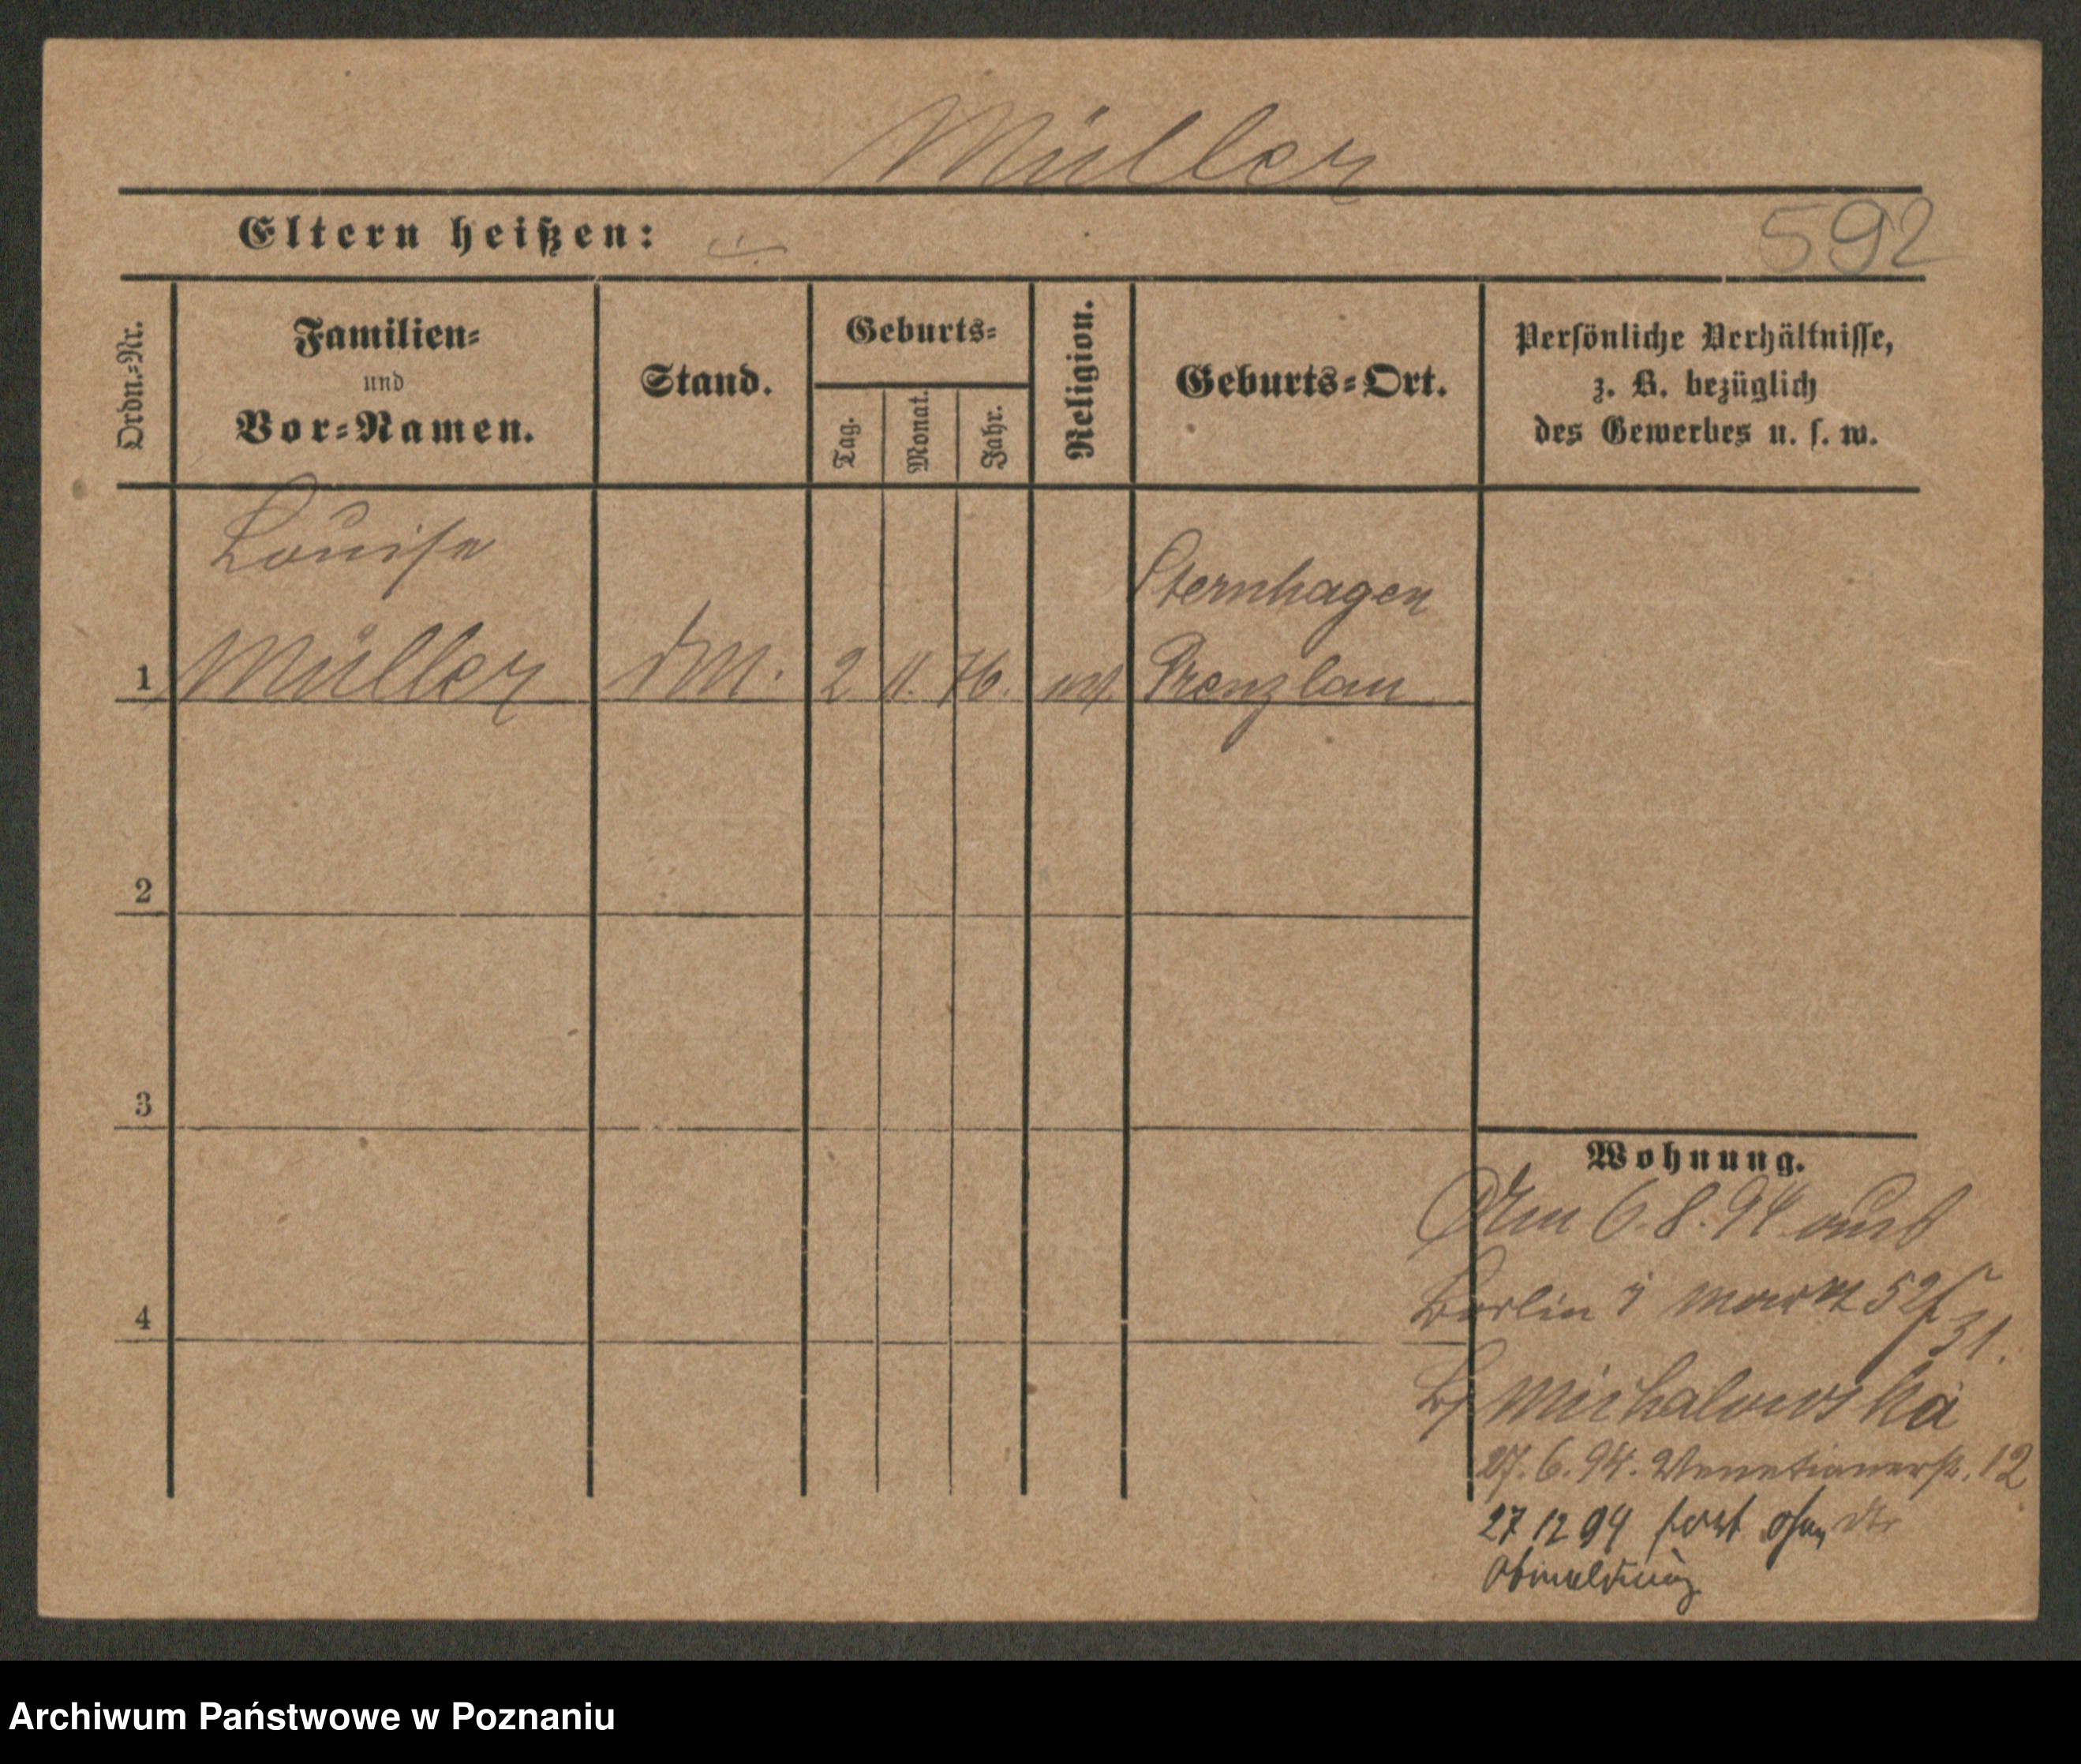 Müller
Eltern heißen: ./.
592
Ordn.-Nr.
Familien-
und
Vor-Namen.
Stand.
Geburts-
Tag.
Monat.
Jahr.
Religion.
Geburts-Ort.
Persönliche Verhältnisse,
z. B. bezüglich
des Gewerbes u. s. w.
Louise
Müller
2
11.
76.
Sternhagen
Prenzlau
1
2
3
4
Wohnung.
6.8.94 aus
Berlin
31.
Michalowska
27.6.94. Venetianerstr. 12
27 12 94 fort ohne
Abmeldung
Archiwum Państwowe w Poznaniu